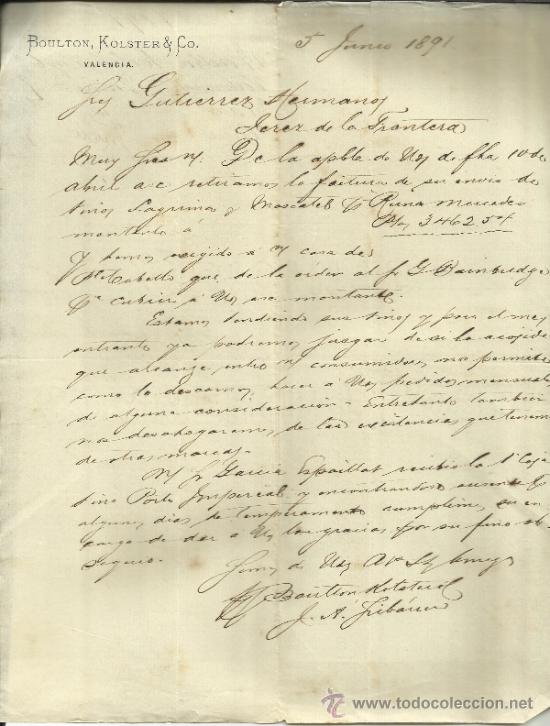 BOULTON, KOLSTER & CO.
VALENCIA.
5 Junio 1891.
Sres Gutierrez Hermanos
Jerez de la Frontera
Muy Sres ns. De la apble de Uds de fha 10 de
abril a.c. retiramos la factura de su envio de
vinos Lagrima y Moscatel Reina Mercedes
montante á 3462.50
Y hemos exigido á n casa de
Pto Cabello que de la órden al Sr G. Bainbridge
cubrir á Uds ese montante.
Estamos vendiendo sus vinos y para el mes
entrante ya podremos juzgar de si la acojida
que alcanze entre consumidores nos permite
como lo deseamos, hacer á Uds pedidos mensuales
de alguna consideración - Entretanto tambien
nos desahogaremos de las existencias que tenemos
de otras marcas.
N Sr Garcia Espaillat recibió la 1ª Caja
vino Porto Imperial y encontrandose ausente
algunos dias de temperamento cumplimos su en
cargo de dar á Uds las gracias por su fino ob
sequio.
Somos de Uds
Boulton Kolster Co
J. A.
www.todocoleccion.net